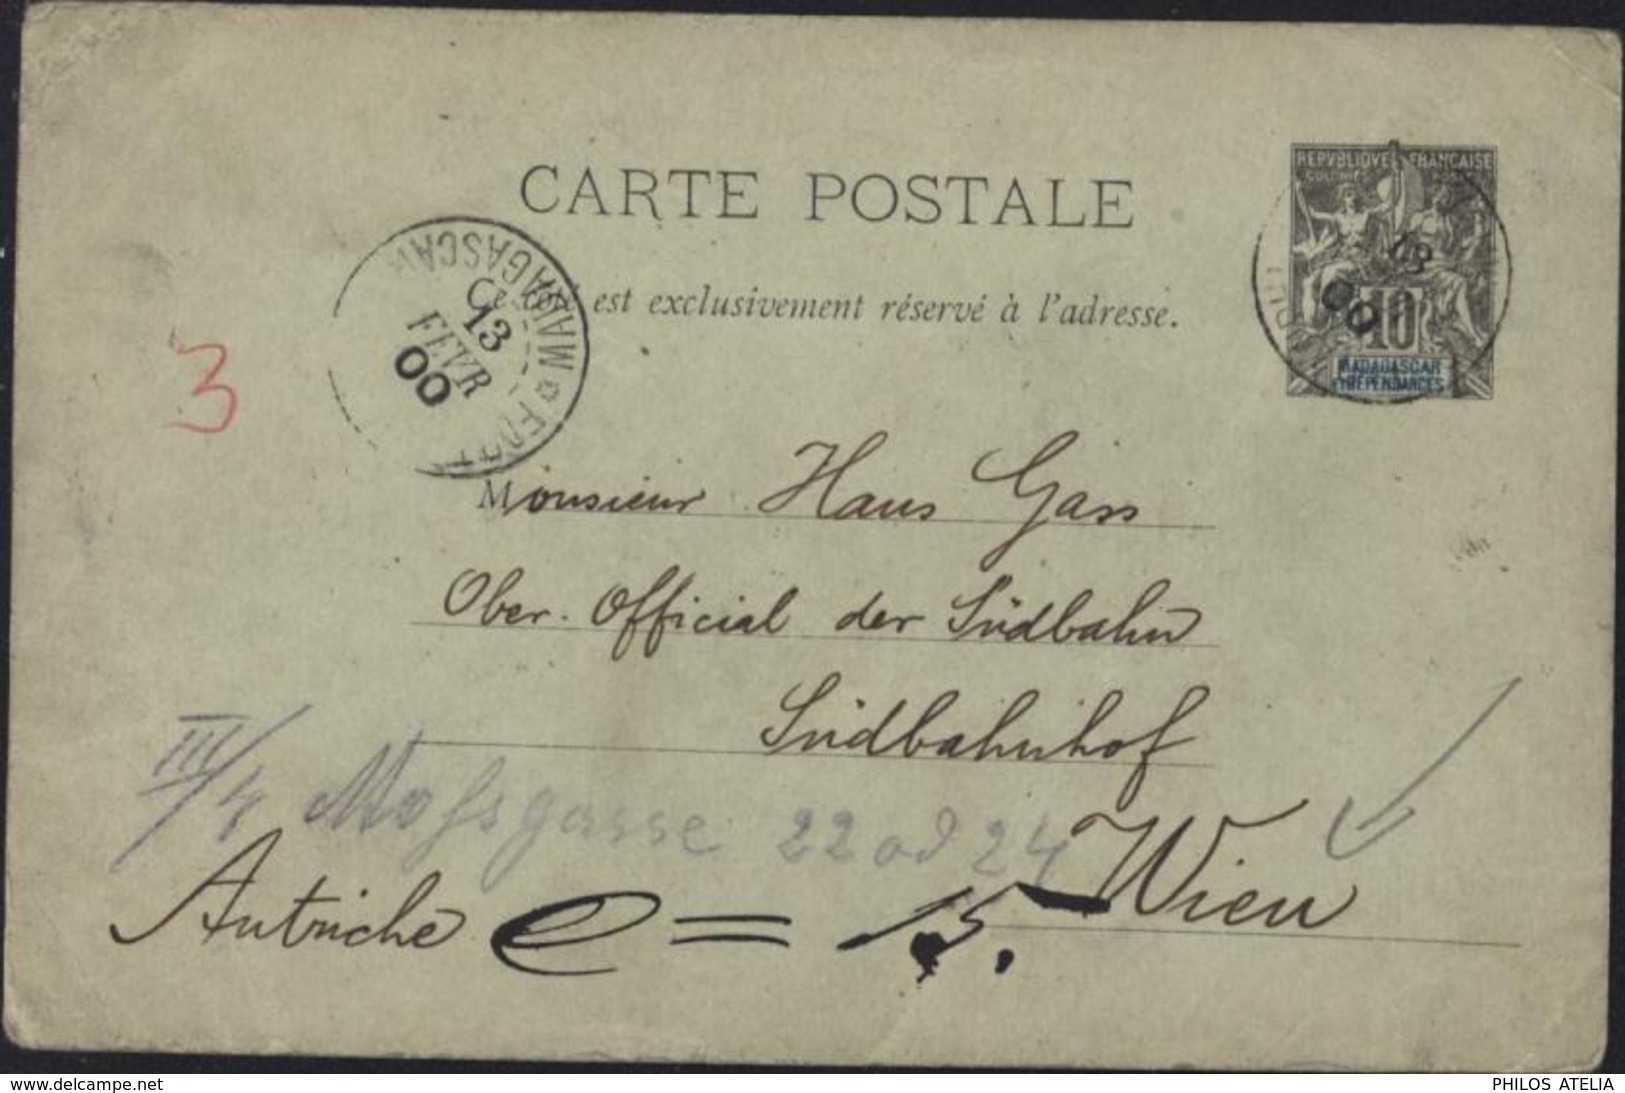 REPVBLIQVE FRANCAISE
COLONIES
10
MADAGASCAR
ET DÉPENDANCES
00
CARTE POSTALE
Ce côté est exclusivement réservé à l'adresse.
MADAGASCAR
13
FEVR
00
3
Monsieur Hans Gass
Ober. Official der Südbahn
Südbahnhof
III/4 Mohsgasse 22 od 24
Wien
Autriche
15.
www.delcampe.net
PHILOS ATELIA